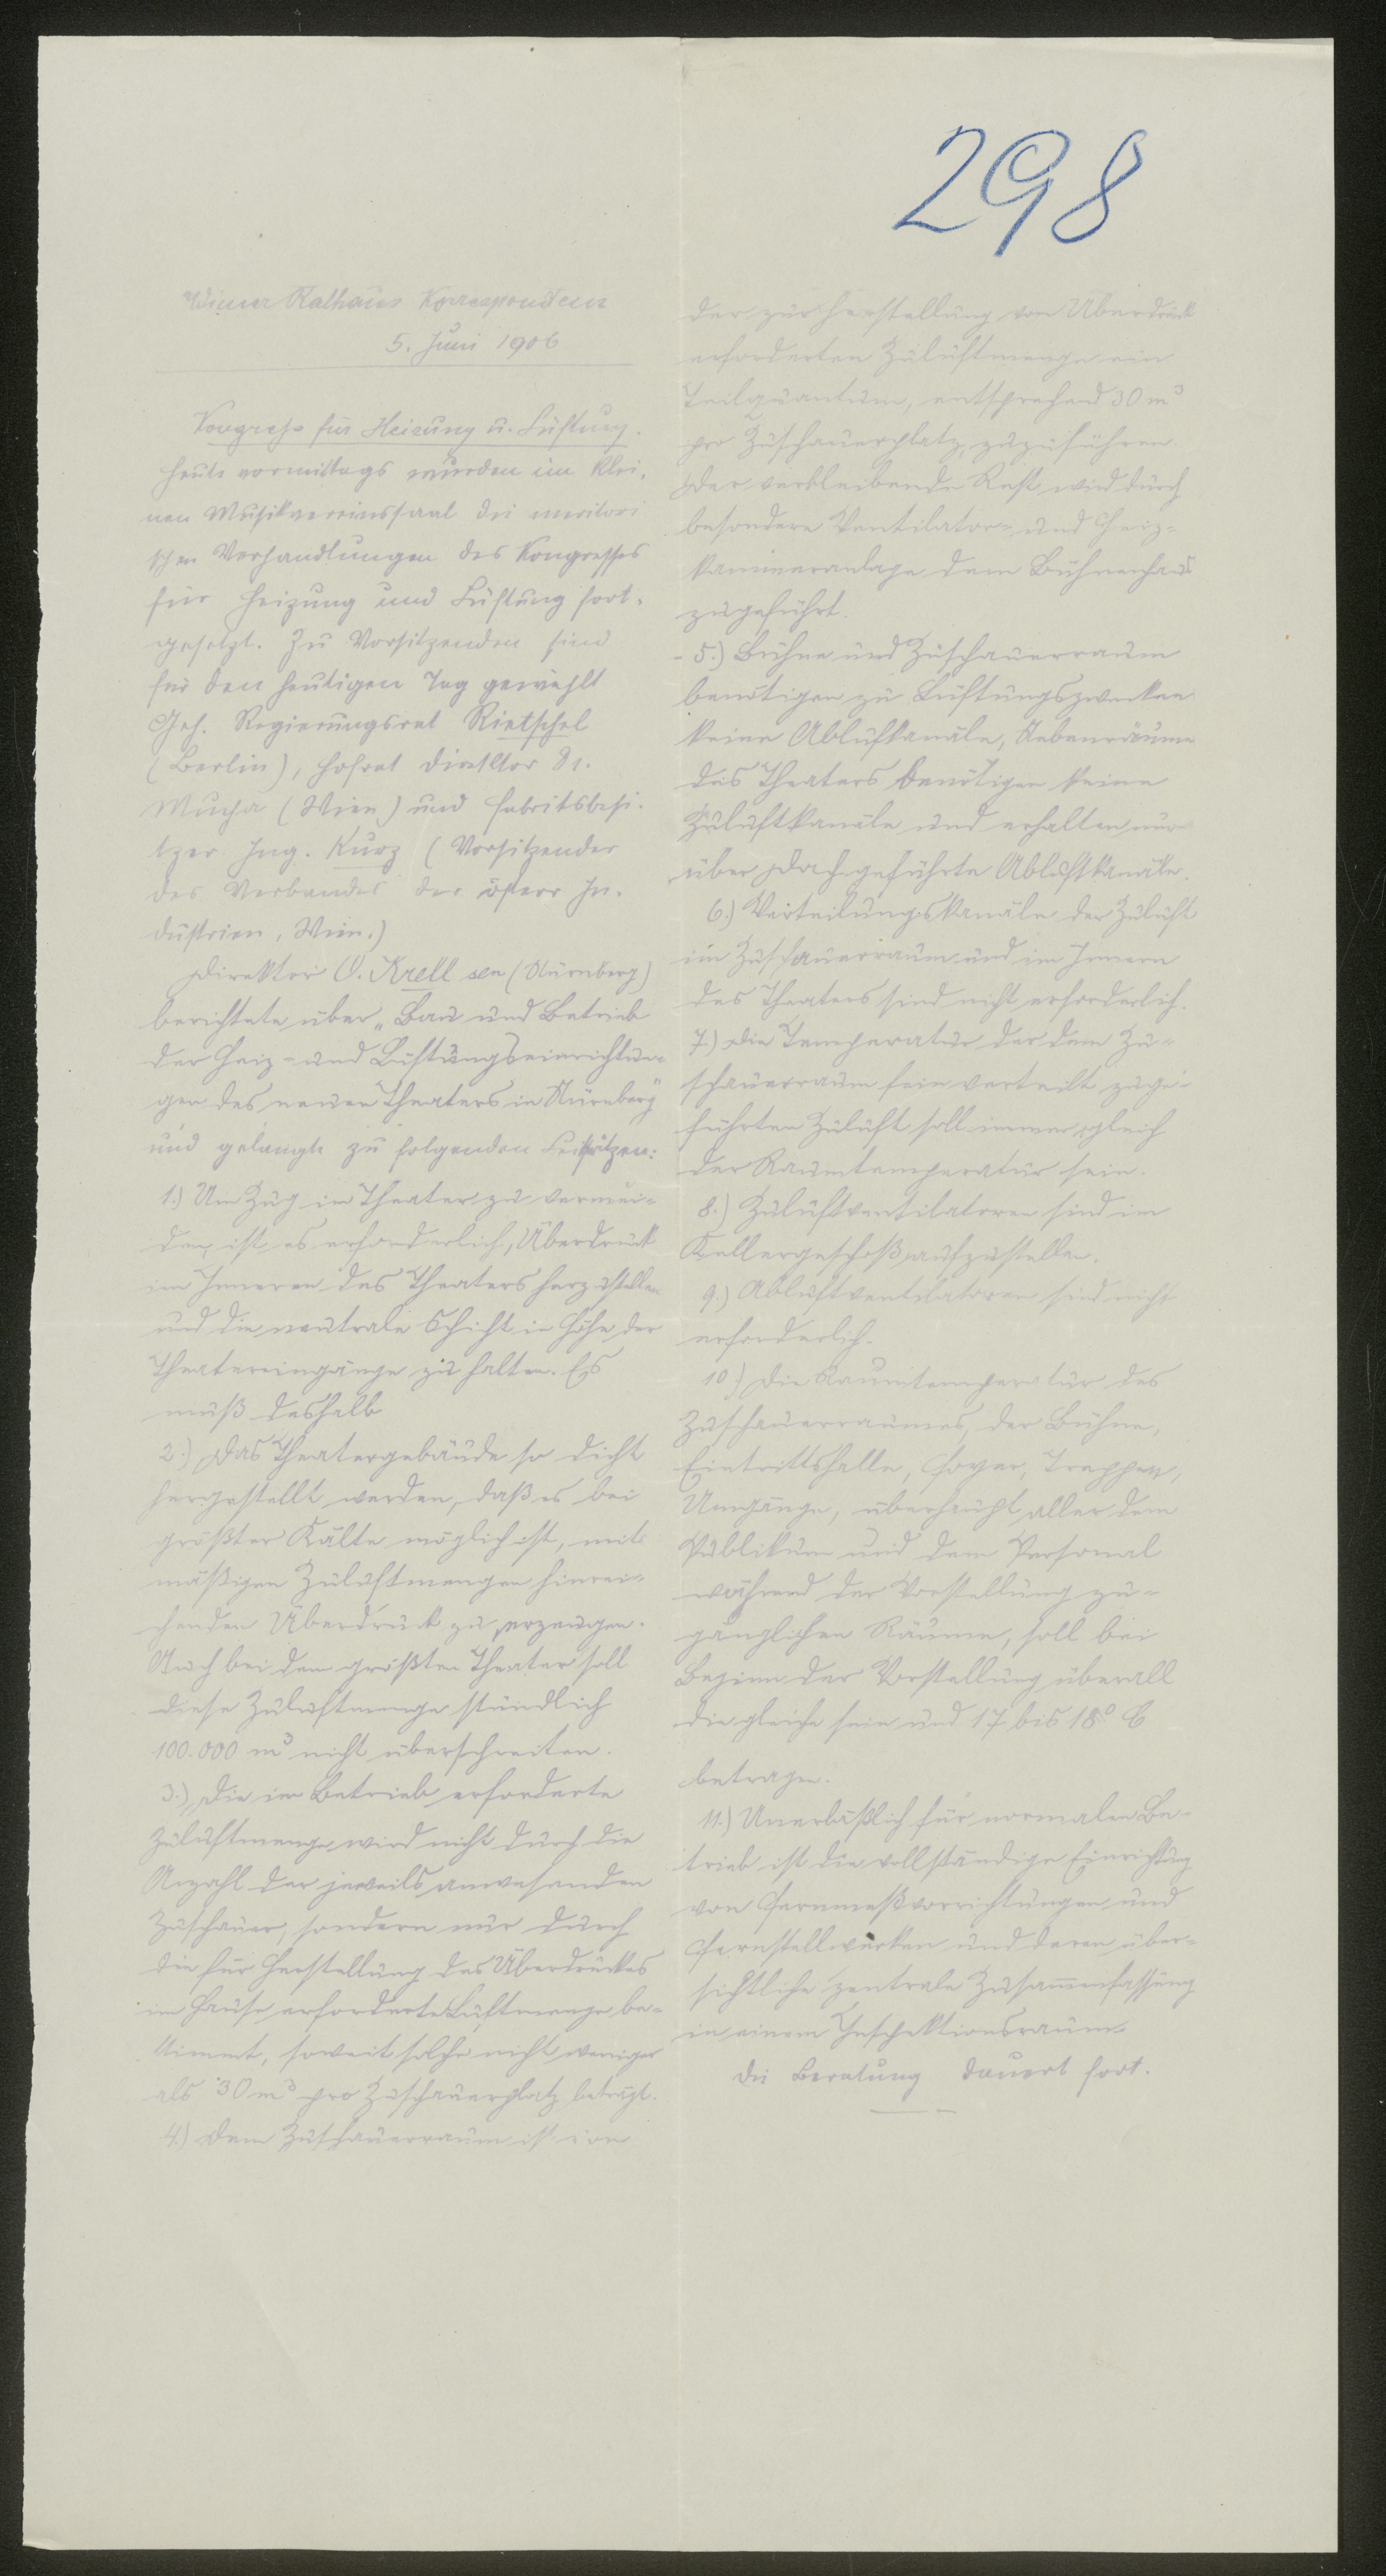 298
Wiener Rathaus Korrespondenz
5. Juni 1906
Kongreß für Heizung u. Lüftung.
Heute vormittags wurden im klei-
nen Musikvereinssaal die meritori
schen Verhandlungen des Kongresses
für Heizung und Lüftung fort-
gesetzt. Zu Vorsitzenden sind
für den heutigen Tag gewählt
Geh. Regierungsrat Rietschel
(Berlin), Hofrat Direktor Dr.
Mucha (Wien) und Fabriksbesi-
tzer Ing. Kurz (Vorsitzender
des Verbandes der österr In-
dustrien, Wien.)
Direktor O. Krell sen (Nürnberg)
berichtete über „Bau und Betrieb
der Heiz- und Lüftungseinrichtun-
gen des neuen Theaters in Nürnberg"
und gelangte zu folgenden Leitsätzen:
1.) Um Zug im Theater zu vermei-
den, ist es erforderlich, Überdruck
im Inneren des Theaters herzustellen
und die neutrale Schicht in Höhe der
Theatereingänge zu halten. Es
muß deshalb
2.) Das Theatergebäude so dicht
hergestellt werden, daß es bei
größter Kälte möglich ist, mit
mäßigen Zuluftmengen hinrei-
chenden Überdruck zu erzeugen.
Auch bei dem größten Theater soll
diese Zuluftmenge stündlich
100.000 m³ nicht überschreiten.
3.) Die im Betrieb erforderte
Zuluftmenge wird nicht durch die
Anzahl der jeweils anwesenden
Zuschauer, sondern nur durch
die für Herstellung des Überdruckes
im Hause erforderte Luftmenge be-
stimmt, soweit solche nicht weniger
als 30 m³ pro Zuschauerplatz beträgt.
4.) Dem Zuschauerraum ist von
der zur Herstellung von Überdruck
erforderten Zuluftmenge ein
Teilquantum, entsprechend 30 m³
pro Zuschauerplatz, zuzuführen.
Der verbleibende Rest wird durch
besondere Ventilator- und Heiz-
kammeranlage dem Bühnenhaus
zugeführt.
5.) Bühne und Zuschauerraum
benötigen zu Lüftungszwecken
keine Abluftkanäle, Nebenräume
des Theaters benötigen keine
Zuluftkanäle und erhalten nur
über Dach geführte Abluftkanäle.
6.) Verteilungskanäle der Zuluft
im Zuschauerraum und im Innern
des Theaters sind nicht erforderlich.
7.) Die Temperatur der dem Zu-
schauerraum fein verteilt zuge-
führten Zuluft soll immer gleich
der Raumtemperatur sein.
8.) Zuluftventilatoren sind im
Kellergeschoß aufzustellen.
9.) Abluftventilatoren sind nicht
erforderlich.
10.) Die Raumtemperatur des
Zuschauerraumes, der Bühne,
Eintrittshalle, Foyer, Treppen,
Umgänge, überhaupt aller dem
Publikum und dem Personal
während der Vorstellung zu-
gänglichen Räume, soll bei
Beginn der Vorstellung überall
die gleiche sein und 17 bis 18° C
betragen.
11.) Unerläßlich für normalen Be-
trieb ist die vollständige Einrichtung
von Fernmeßvorrichtungen und
Fernstellwerken und deren über-
sichtliche zentrale Zusammenfassung
in einem Inspektionsraum.
Die Beratung dauert fort.